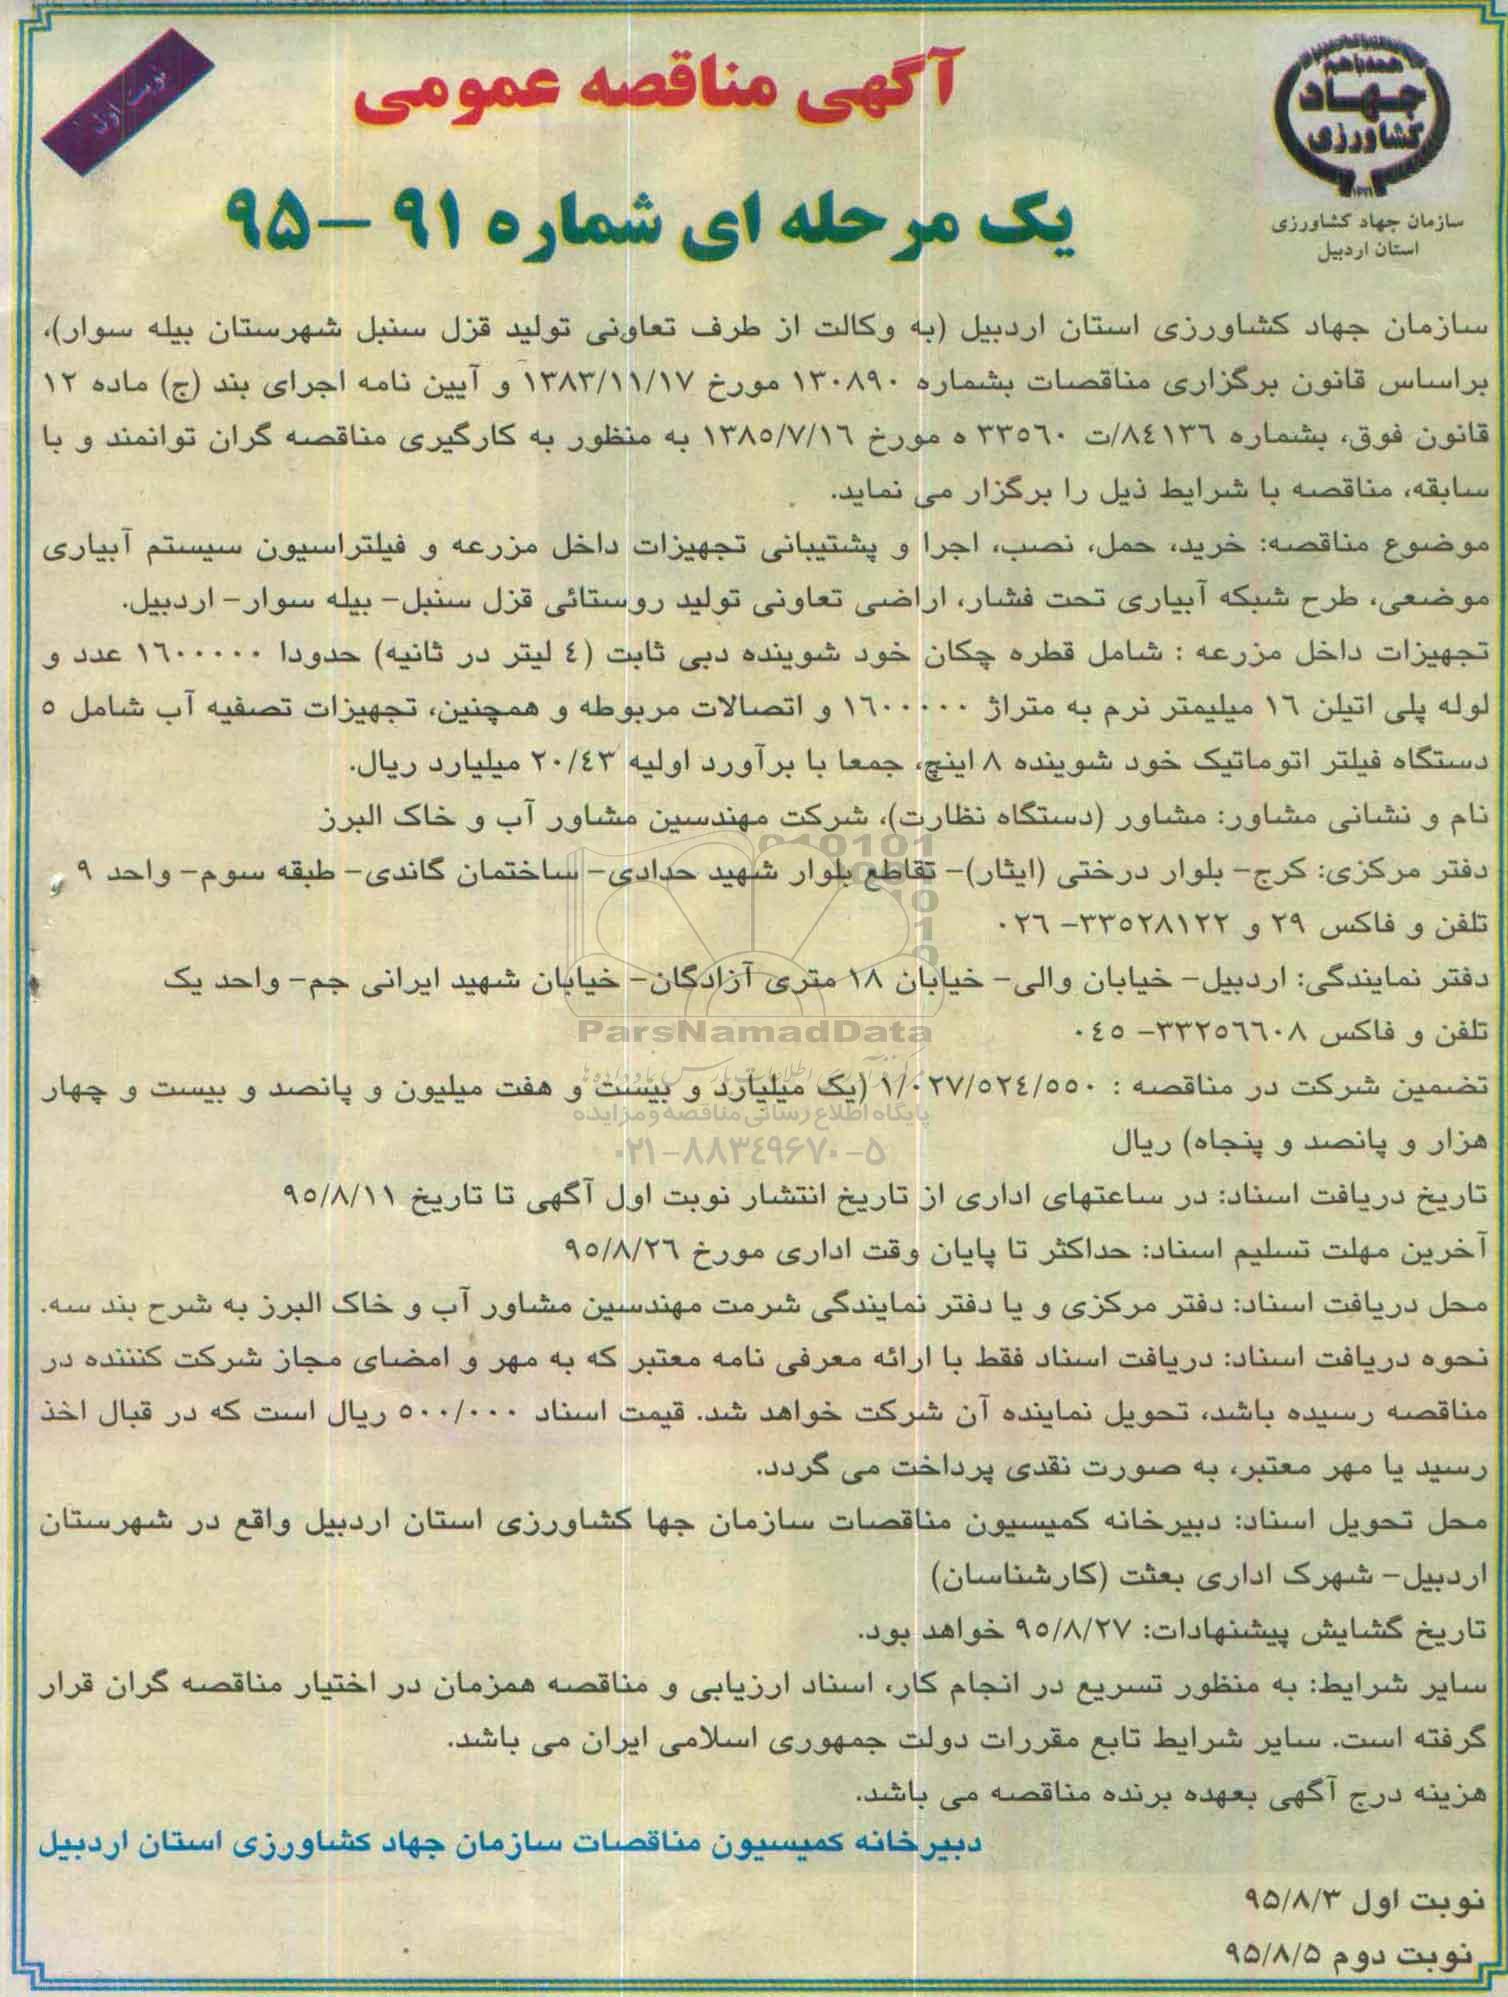 نوبت اول
آگهی مناقصه عمومی
یک مرحله ای شماره ۹۱ – ۹۵
همه با هم
جهاد
کشاورزی
سازمان جهاد کشاورزی
استان اردبیل
سازمان جهاد کشاورزی استان اردبیل (به وکالت از طرف تعاونی تولید قزل سنبل شهرستان بیله سوار)،
براساس قانون برگزاری مناقصات بشماره ۱۳۰۸۹۰ مورخ ۱۳۸۳/۱۱/۱۷ و آیین نامه اجرای بند (ج) ماده ۱۲
قانون فوق، بشماره ۸٤۱۳٦/ت ۳۳۵٦۰ ه مورخ ۱۳۸۵/۷/۱٦ به منظور به کارگیری مناقصه گران توانمند و با
سابقه، مناقصه با شرایط ذیل را برگزار می نماید.
موضوع مناقصه: خرید، حمل، نصب، اجرا و پشتیبانی تجهیزات داخل مزرعه و فیلتراسیون سیستم آبیاری
موضعی، طرح شبکه آبیاری تحت فشار، اراضی تعاونی تولید روستائی قزل سنبل- بیله سوار- اردبیل.
تجهیزات داخل مزرعه : شامل قطره چکان خود شوینده دبی ثابت (٤ لیتر در ثانیه) حدودا ۱٦۰۰۰۰۰ عدد و
لوله پلی اتیلن ۱٦ میلیمتر نرم به متراژ ۱٦۰۰۰۰۰ و اتصالات مربوطه و همچنین، تجهیزات تصفیه آب شامل ۵
دستگاه فیلتر اتوماتیک خود شوینده ۸ اینچ، جمعا با برآورد اولیه ۲۰/٤۳ میلیارد ریال.
نام و نشانی مشاور: مشاور (دستگاه نظارت)، شرکت مهندسین مشاور آب و خاک البرز
دفتر مرکزی: کرج- بلوار درختی (ایثار)- تقاطع بلوار شهید حدادی- ساختمان گاندی- طبقه سوم- واحد ۹ و
تلفن و فاکس ۲۹ و ۳۳۵۲۸۱۲۲- ۰۲٦
دفتر نمایندگی: اردبیل- خیابان والی- خیابان ۱۸ متری آزادگان- خیابان شهید ایرانی جم- واحد یک
تلفن و فاکس ۳۳۲۵٦٦۰۸- ۰٤۵
تضمین شرکت در مناقصه : ۱/۰۲۷/۵۲٤/۵۵۰ (یک میلیارد و بیست و هفت میلیون و پانصد و بیست و چهار
هزار و پانصد و پنجاه) ریال
تاریخ دریافت اسناد: در ساعتهای اداری از تاریخ انتشار نوبت اول آگهی تا تاریخ ۹۵/۸/۱۱
آخرین مهلت تسلیم اسناد: حداکثر تا پایان وقت اداری مورخ ۹۵/۸/۲٦
محل دریافت اسناد: دفتر مرکزی و یا دفتر نمایندگی شرمت مهندسین مشاور آب و خاک البرز به شرح بند سه.
نحوه دریافت اسناد: دریافت اسناد فقط با ارائه معرفی نامه معتبر که به مهر و امضای مجاز شرکت کنننده در
مناقصه رسیده باشد، تحویل نماینده آن شرکت خواهد شد. قیمت اسناد ۵۰۰/۰۰۰ ریال است که در قبال اخذ
رسید یا مهر معتبر، به صورت نقدی پرداخت می گردد.
محل تحویل اسناد: دبیرخانه کمیسیون مناقصات سازمان جها کشاورزی استان اردبیل واقع در شهرستان
اردبیل- شهرک اداری بعثت (کارشناسان)
تاریخ گشایش پیشنهادات: ۹۵/۸/۲۷ خواهد بود.
سایر شرایط: به منظور تسریع در انجام کار، اسناد ارزیابی و مناقصه همزمان در اختیار مناقصه گران قرار
گرفته است. سایر شرایط تابع مقررات دولت جمهوری اسلامی ایران می باشد.
هزینه درج آگهی بعهده برنده مناقصه می باشد.
دبیرخانه کمیسیون مناقصات سازمان جهاد کشاورزی استان اردبیل
نوبت اول ۹۵/۸/۳
نوبت دوم ۹۵/۸/۵
ParsNamadData
پایگاه اطلاع رسانی مناقصه و مزایده
۰۲۱-۸۸۳۴۹۶۷۰-۵